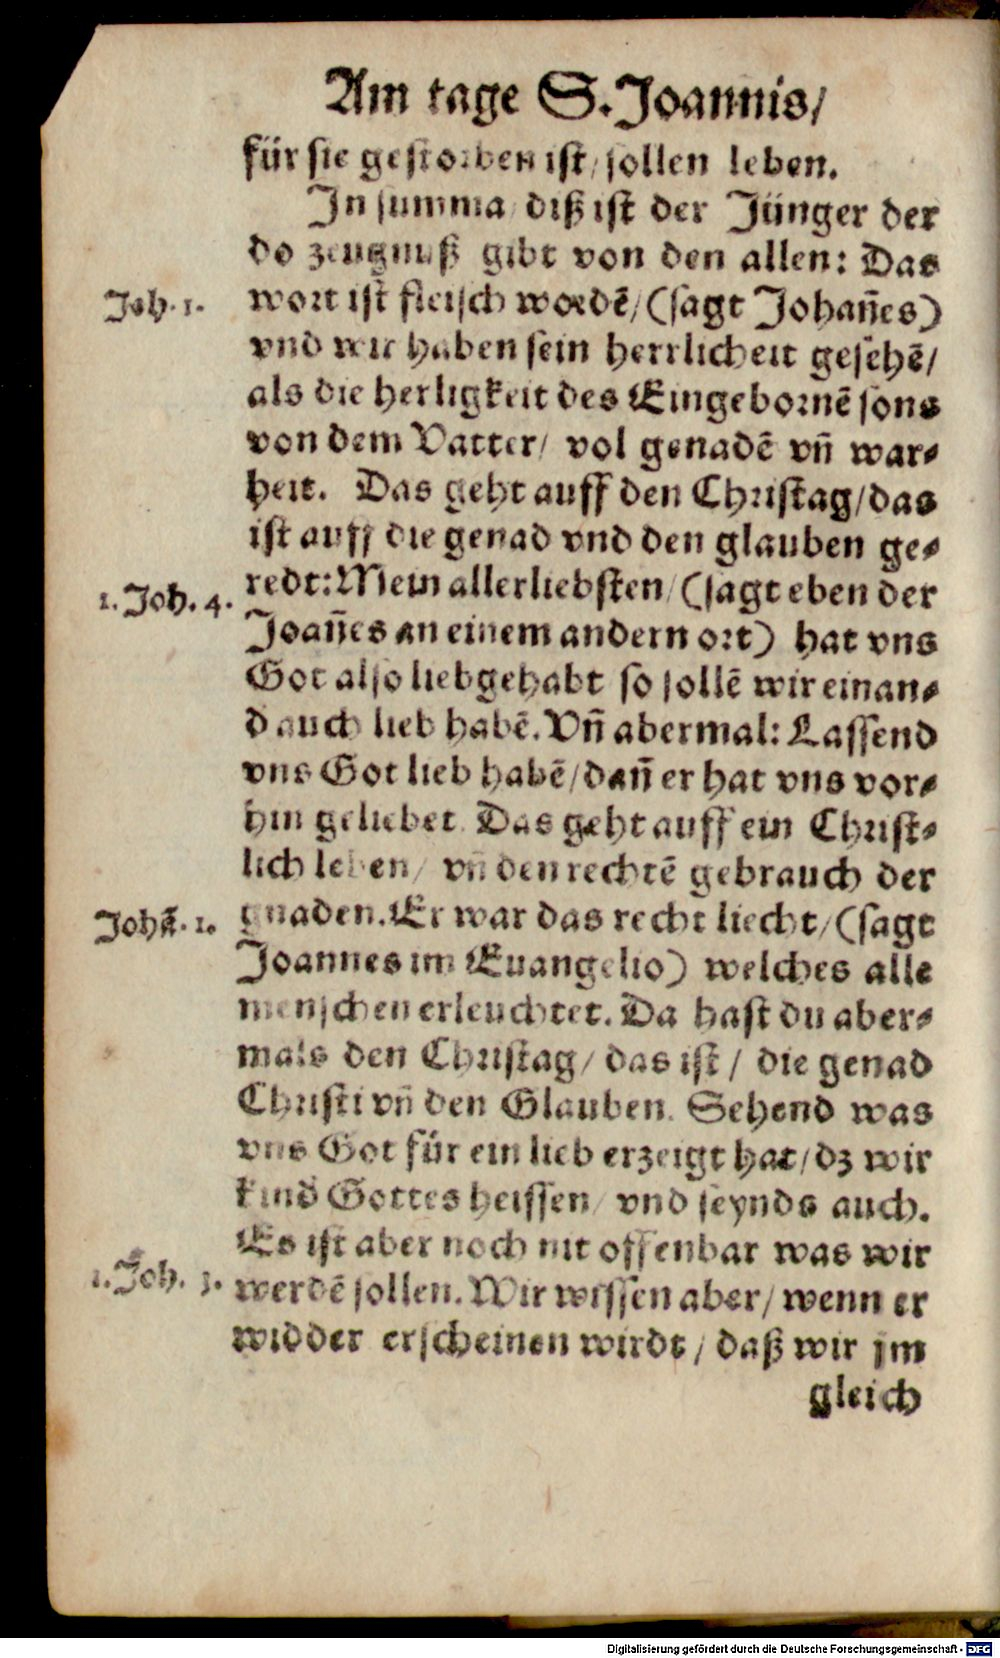 Am tage S. Joannis/
für sie gestorben ist/ sollen leben.
In summa/ diß ist der Jünger der
do zeugnuß gibt von den allen: Das
Joh. 1.
wort ist fleisch wordē/ (sagt Johañes)
vnd wir haben sein herrlicheit gesehē/
als die herligkeit des Eingebornē sons
von dem Vatter/ vol genadē vñ war⸗
heit. Das geht auff den Christag/ das
ist auff die genad vnd den glauben ge⸗
1. Joh. 4.
redt: Mein allerliebsten/ (sagt eben der
Joañes an einem andern ort) hat vns
Got also lieb gehabt so sollē wir einan⸗
d auch lieb habē. Vñ abermal: Lassend
vns Got lieb habē/ dañ er hat vns vor⸗
hin geliebet. Das geht auff ein Christ⸗
lich leben/ vñ den rechtē gebrauch der
Johā. 1.
gnaden. Er war das recht liecht/ (sagt
Joannes im Euangelio) welches alle
menschen erleuchtet. Da hast du aber⸗
mals den Christag/ das ist/ die genad
Christi vñ den Glauben. Sehend was
vns Got für ein lieb erzeigt hat/ dz wir
kind Gottes heissen/ vnd seynds auch.
Es ist aber noch nit offenbar was wir
1. Joh. 3.
werdē sollen. Wir wissen aber/ wenn er
widder erscheinen wirdt/ daß wir jm
gleich
Digitalisierung gefördert durch die Deutsche Forschungsgemeinschaft - DFG